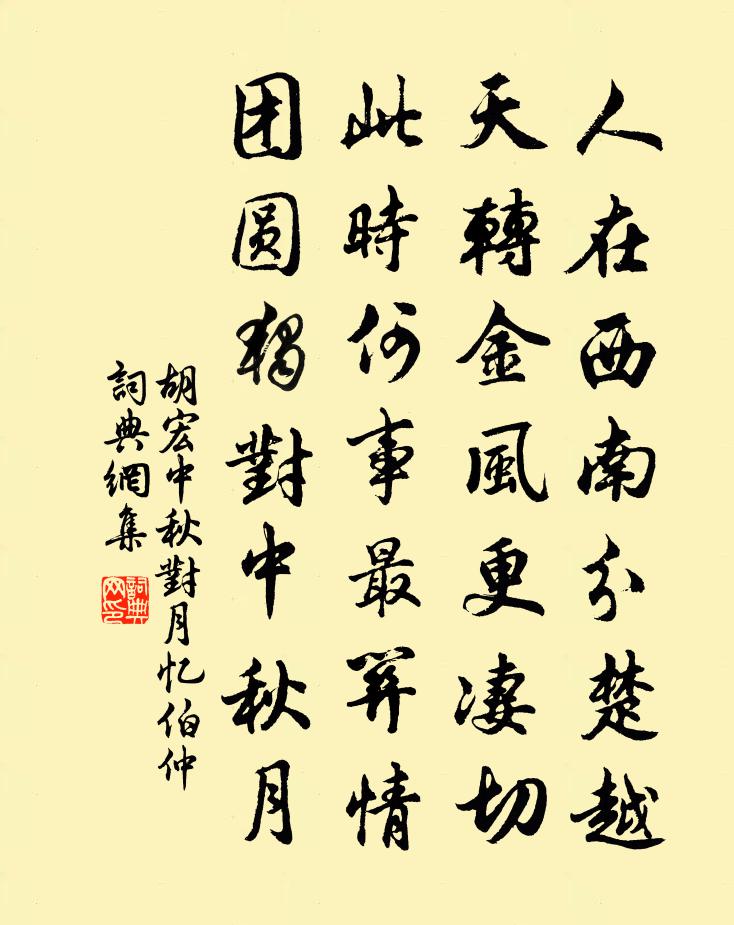 人在西南分楚越
天轉金風更凄切
此時何事最關情
团圆獨對中秋月
胡宏中秋對月忆伯仲
詞典網集
詞典
网印